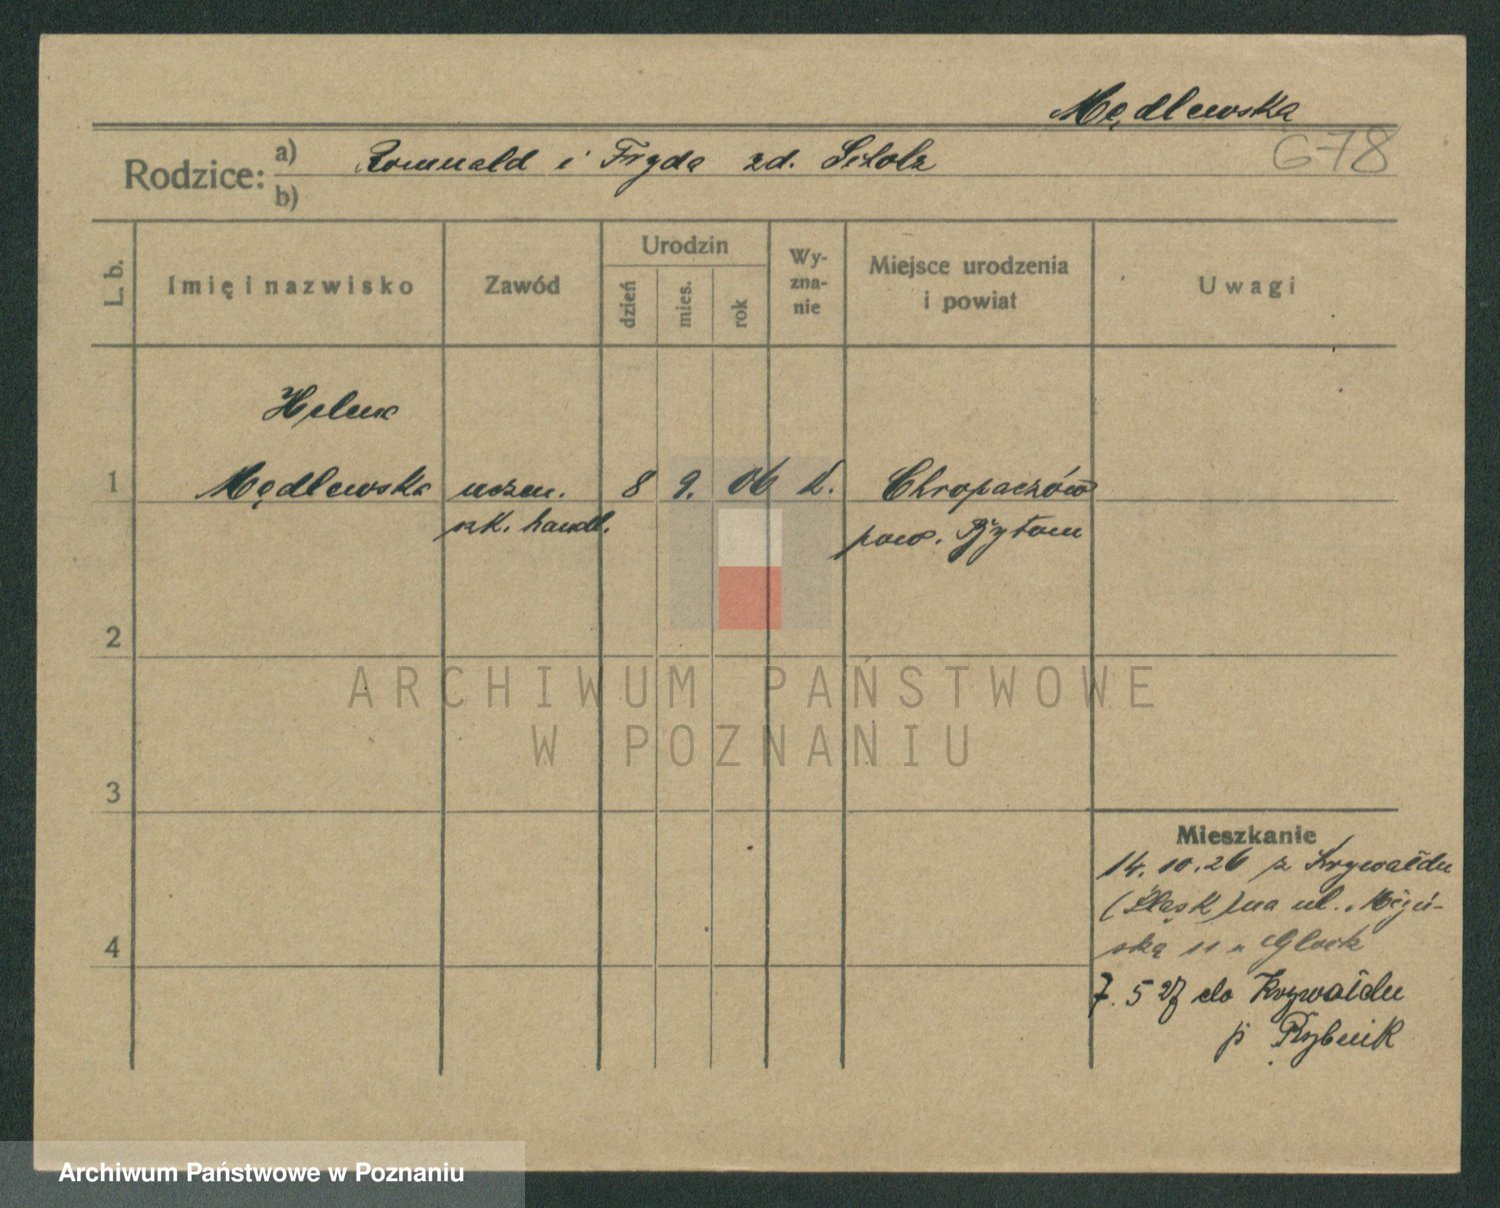 Mędlewska
678
Rodzice: a) Romuald i Fryda zd. Scholz
b)
L. b.
Imię i nazwisko
Zawód
Urodzin
dzień
mies.
rok
Wy-
zna-
nie
Miejsce urodzenia
i powiat
Uwagi
Helena
1 Mędlewska uczen. 8 9. 06 k. Chropaczów
szk. handl. pow. Bytom
2
ARCHIWUM PAŃSTWOWE
W POZNANIU
3
Mieszkanie
14.10.26 z Krywałdu
(Śląsk) na ul.
ską 11 u Glock
4
7. 5 27 do Krywałdu
p Rybnik
Archiwum Państwowe w Poznaniu